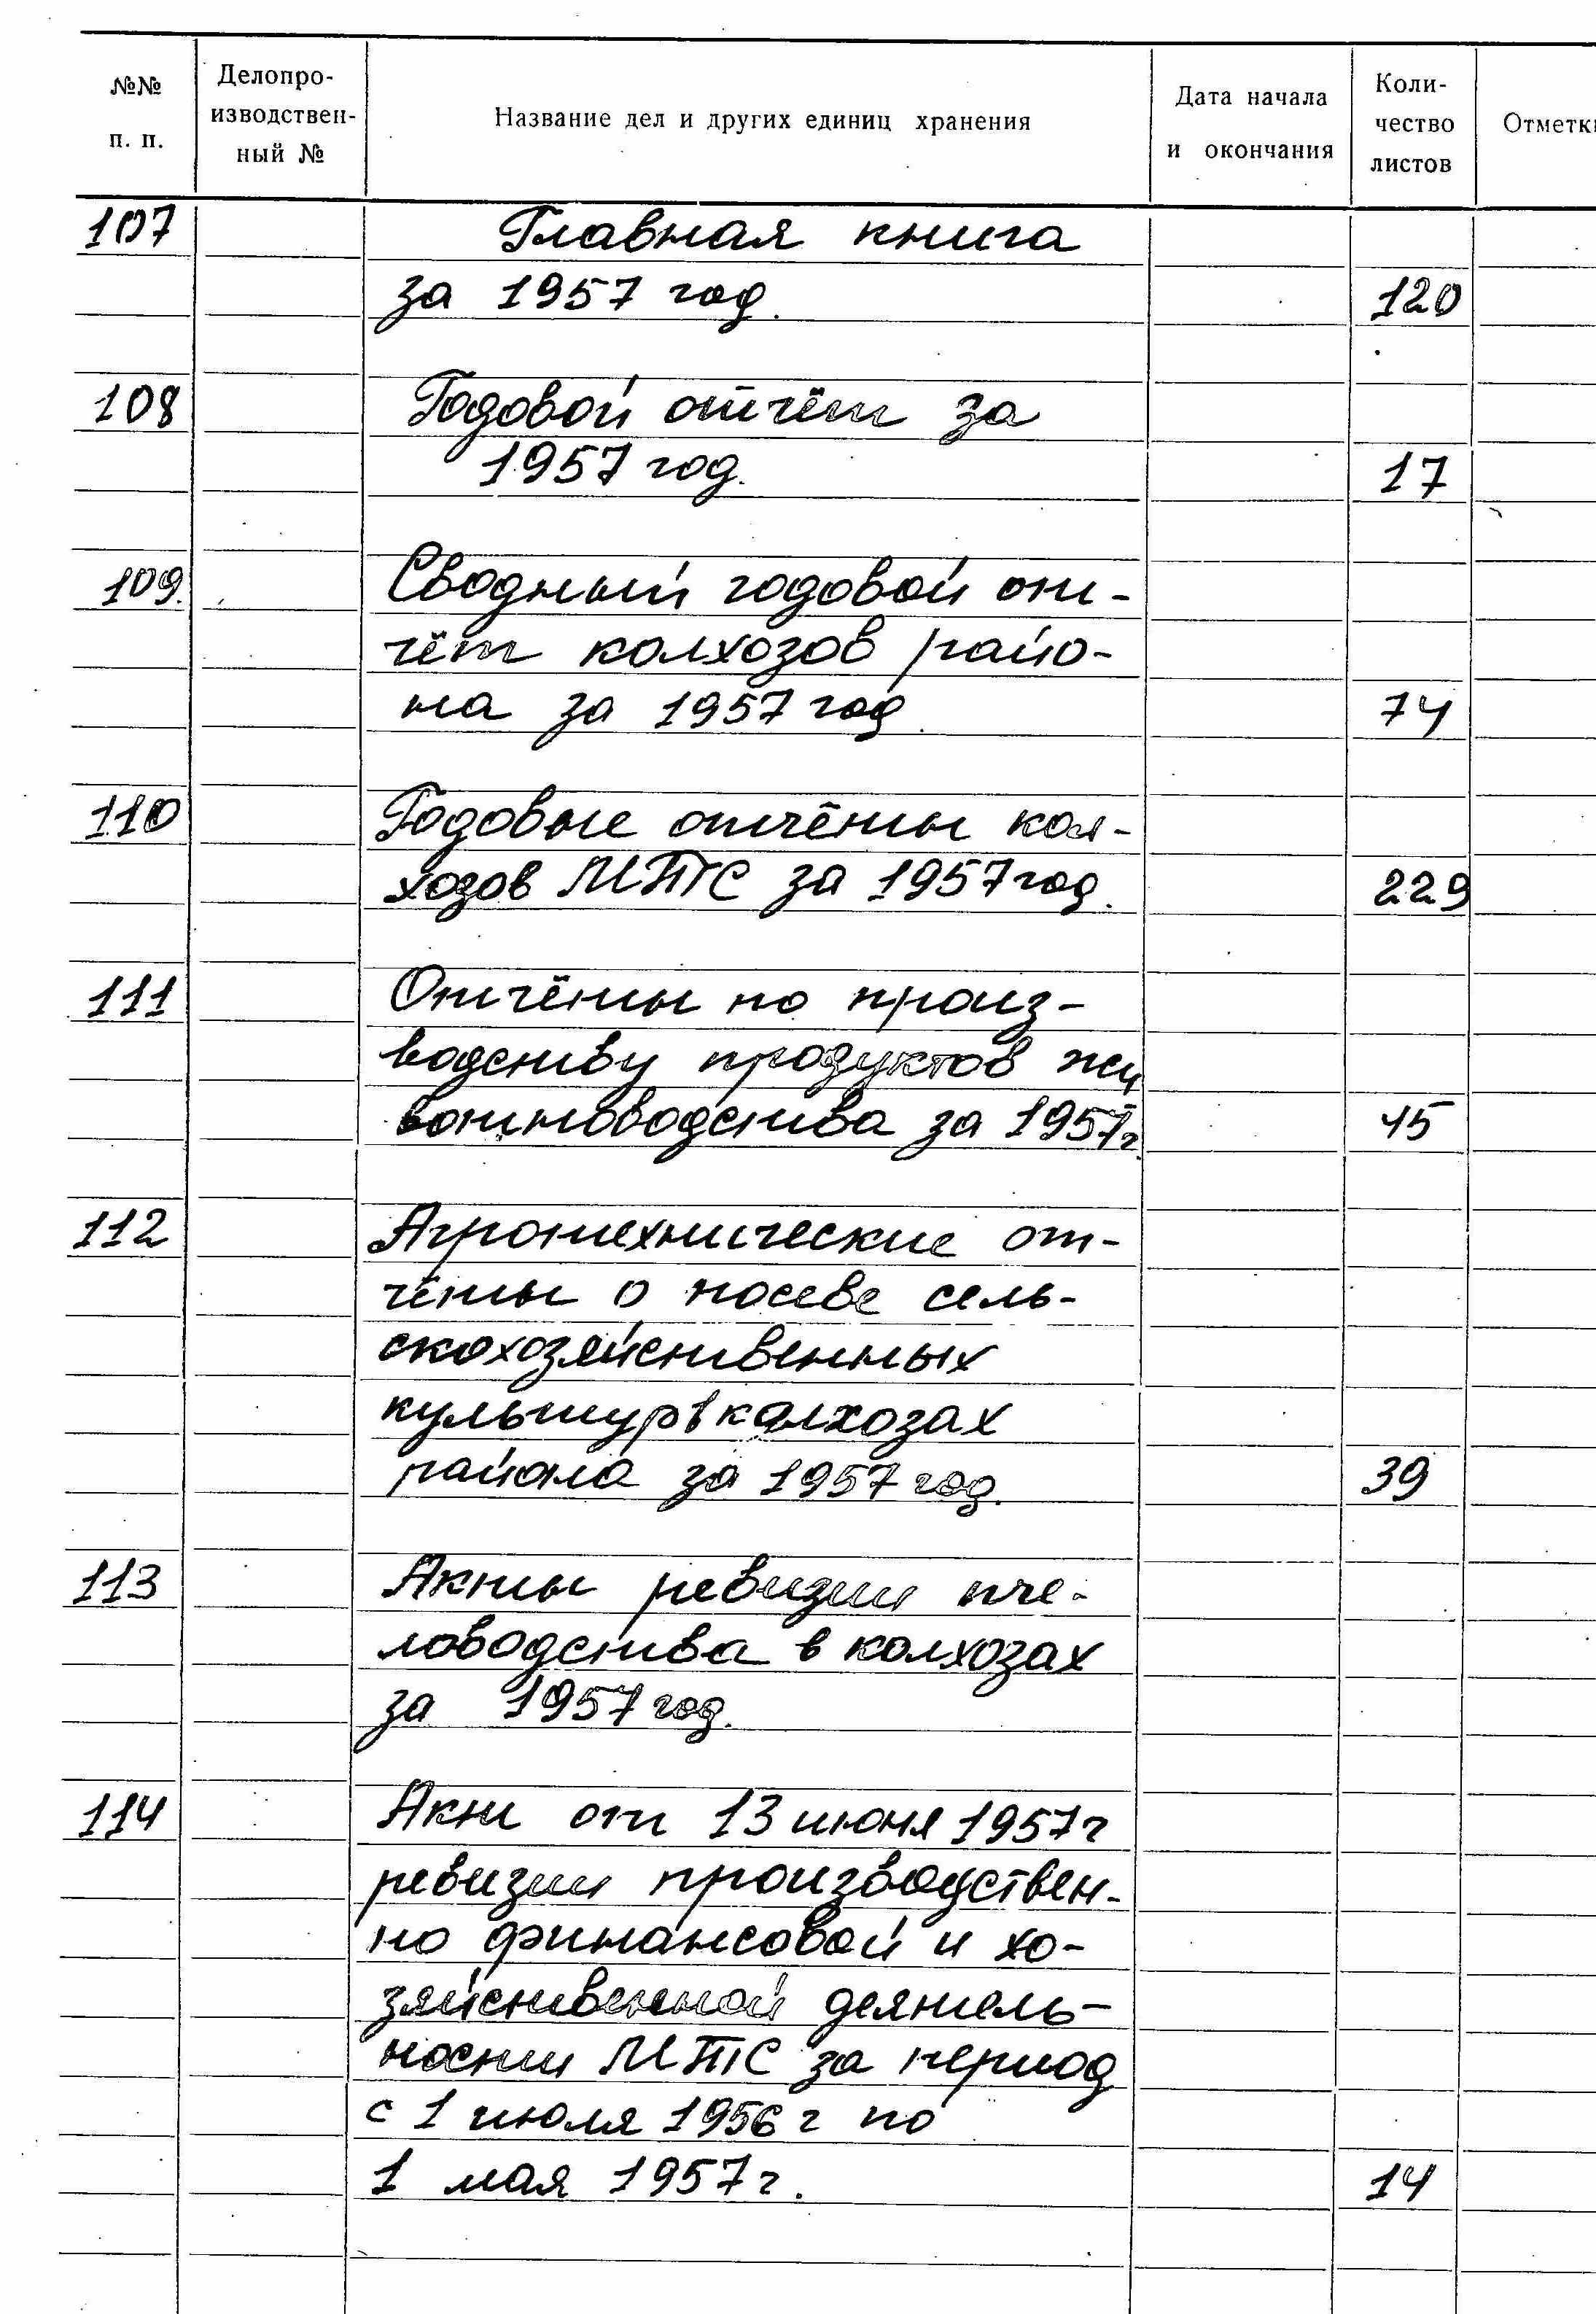 №№ п. п.
Делопро-
изводствен-
ный №
Название дел и других единиц хранения
Дата начала
и окончания
Коли-
чество
листов
Отметк
107 Главная книга
за 1957 год. 120
108 Годовой отчёт за
1957 год. 17
109. Сводный годовой от-
чёт колхозов райо-
на за 1957 год. 74
110 Годовые отчёты кол-
хозов МТС за 1957 год. 229
111 Отчёты по произ-
водству продуктов жи
вотноводства за 1957г. 45
112 Агротехнические от-
чёты о посеве сель-
скохозяйственных
культур в колхозах
района за 1957 год. 39
113 Акты ревизии пче-
ловодства в колхозах
за 1957 год.
114 Акт от 13 июня 1957г
ревизии производствен-
но финансовой и хо-
зяйственной деятель-
ности МТС за период
с 1 июля 1956 г по
1 мая 1957 г. 14